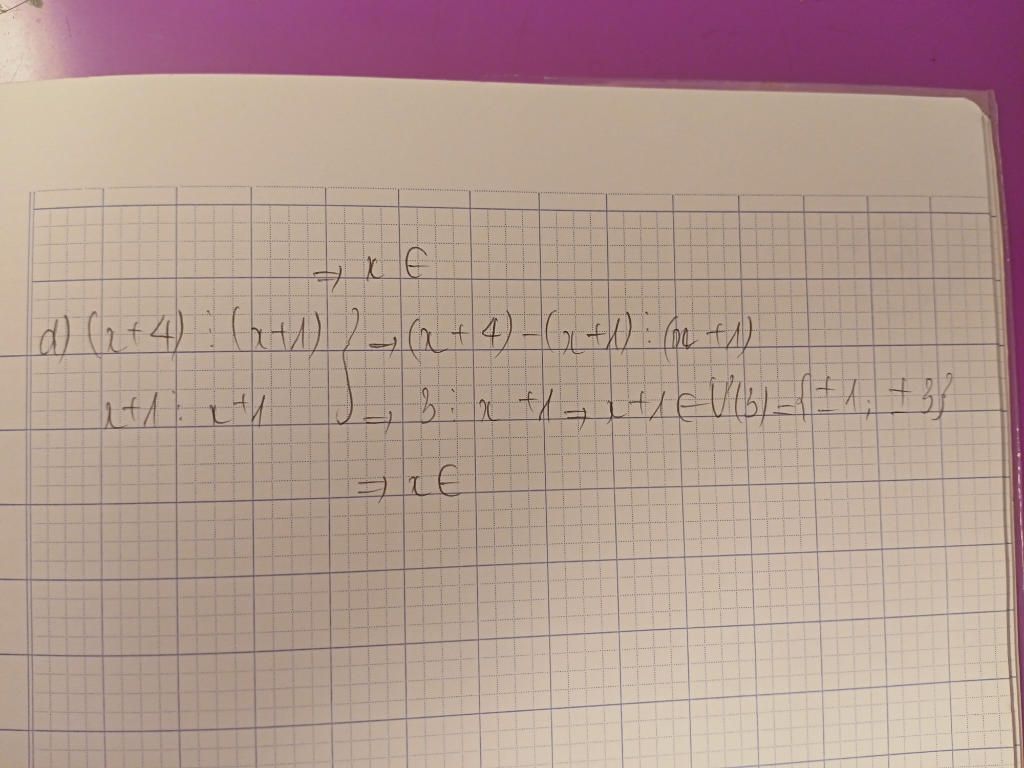 ⇒ x ∈
d) (x+4) ⋮ (x+1) } ⇒ (x+4) - (x+1) ⋮ (x+1)
x+1 ⋮ x+1 ⇒ 3 ⋮ x+1 ⇒ x+1 ∈ Ư(3) = {±1; ±3}
⇒ x ∈